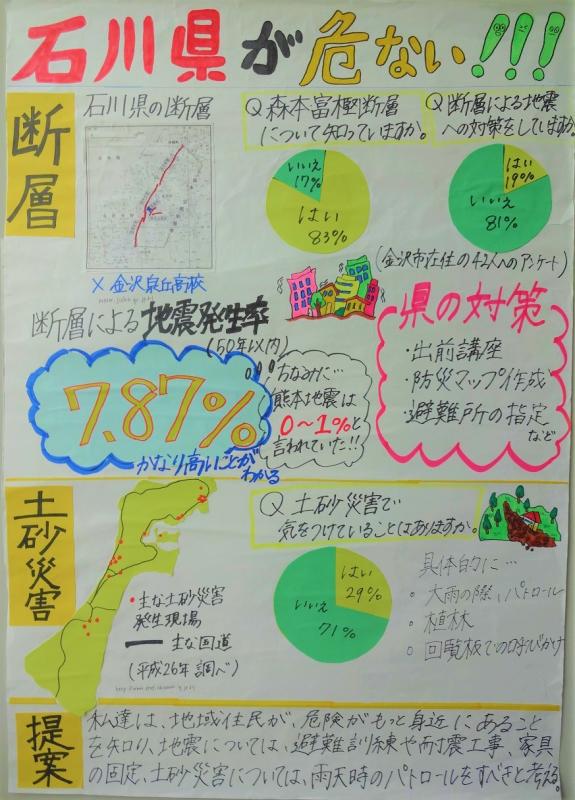 石川県が危ない!!!
断層
石川県の断層
× 金沢泉丘高校
Q 森本富樫断層
について知っていますか。
いいえ
17%
はい
83%
Q 断層による地震
への対策をしていますか
はい
19%
いいえ
81%
(金沢市在住の42人へのアンケート)
断層による地震発生率
(50年以内)
7.87%
かなり高いことが
わかる
ちなみに…
熊本地震は
0~1%と
言われていた!!
県の対策
・出前講座
・防災マップ作成
・避難所の指定
など
土砂災害
・主な土砂災害
発生現場
ー 主な国道
(平成26年調べ)
Q 土砂災害で
気をつけていることはありますか。
はい
29%
いいえ
71%
具体的に…
・大雨の際、パトロール
・植林
・回覧板での呼びかけ
提案
私達は、地域住民が、危険がもっと身近にあること
を知り、地震については、避難訓練や耐震工事、家具
の固定、土砂災害については、雨天時のパトロールをすべきと考える。